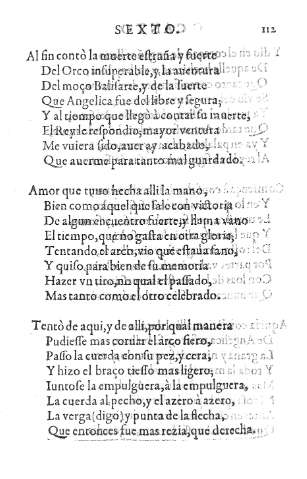 SEXTO. 112
Al fin contò la muerte estraña y fuerte
Del Orco insuperable, y la auentura
Del moço Balisarte, y de la suerte
Que Angelica fue del libre y segura;
Y al tiempo que llegò a contar su muerte,
El Rey le respondio, mayor ventura
Me vuiera sido, auer ay acabado,
Que auerme para tanto mal guardado.
Amor que tuuo hecha alli la mano,
Bien como aquel que sale con victoria
De algun encuentro fuerte, y llama vano
El tiempo, que no gasta en otra gloria;
Tentando el arco, vio que estaua sano,
Y quiso para bien de su memoria
Hazer vn tiro, no qual el passado,
Mas tanto como el otro celebrado.
Tentò de aqui, y de alli, por qual manera
Pudiesse mas cornar el arco fiero,
Passò la cuerda con su pez, y cera;
Y hizo el braço tiesso mas ligero;
Iuntose la empulguera, à la empulguera,
La cuerda al pecho, y el azero à azero,
La verga (digo) y punta de la flecha,
Que entonces fue mas rezia, que derecha.